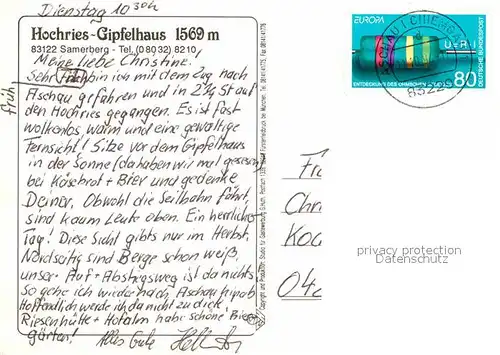 Dienstag 10 30h
Hochries-Gipfelhaus 1569 m
83122 Samerberg - Tel. (0 80 32) 8210
Meine liebe Christine.
Sehr früh bin ich mit dem Zug nach
Aschau gefahren und in 2¾ St auf
den Hochries gegangen. Es ist fast
wolkenlos, warm und eine gewaltige
Fernsicht! Sitze vor dem Gipfelhaus
in der Sonne (da haben wir mal gesessen)
bei Käsebrot + Bier und gedenke
Deiner. Obwohl die Seilbahn fährt,
sind kaum Leute oben. Ein herrlicher
Tag! Diese Sicht gibts nur im Herbst,
Nordseitig sind Berge schon weiß,
unser Auf-Abstiegsweg ist da nichts
so gehe ich wieder nach Aschau hinab
Hoffendlich werde ich da nicht zu dick!
Riesenhütte + Hofalm habe schöne Bier
gärten! Alles Gute
EUROPA
DEUTSCHE BUNDESPOST
U=R·I
80
83229
Fr
Chr
Ko
04
privacy protection
Datenschutz